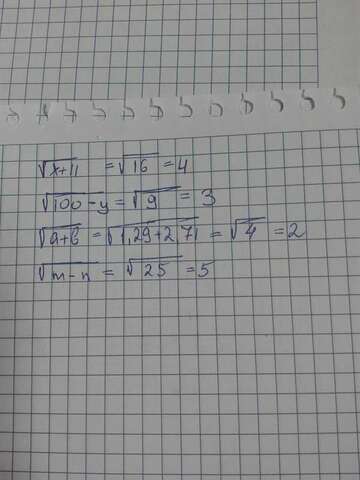 √x+11 = √16 = 4
√100-y = √9 = 3
√a+b = √1,29+2,71 = √4 = 2
√m-n = √25 = 5